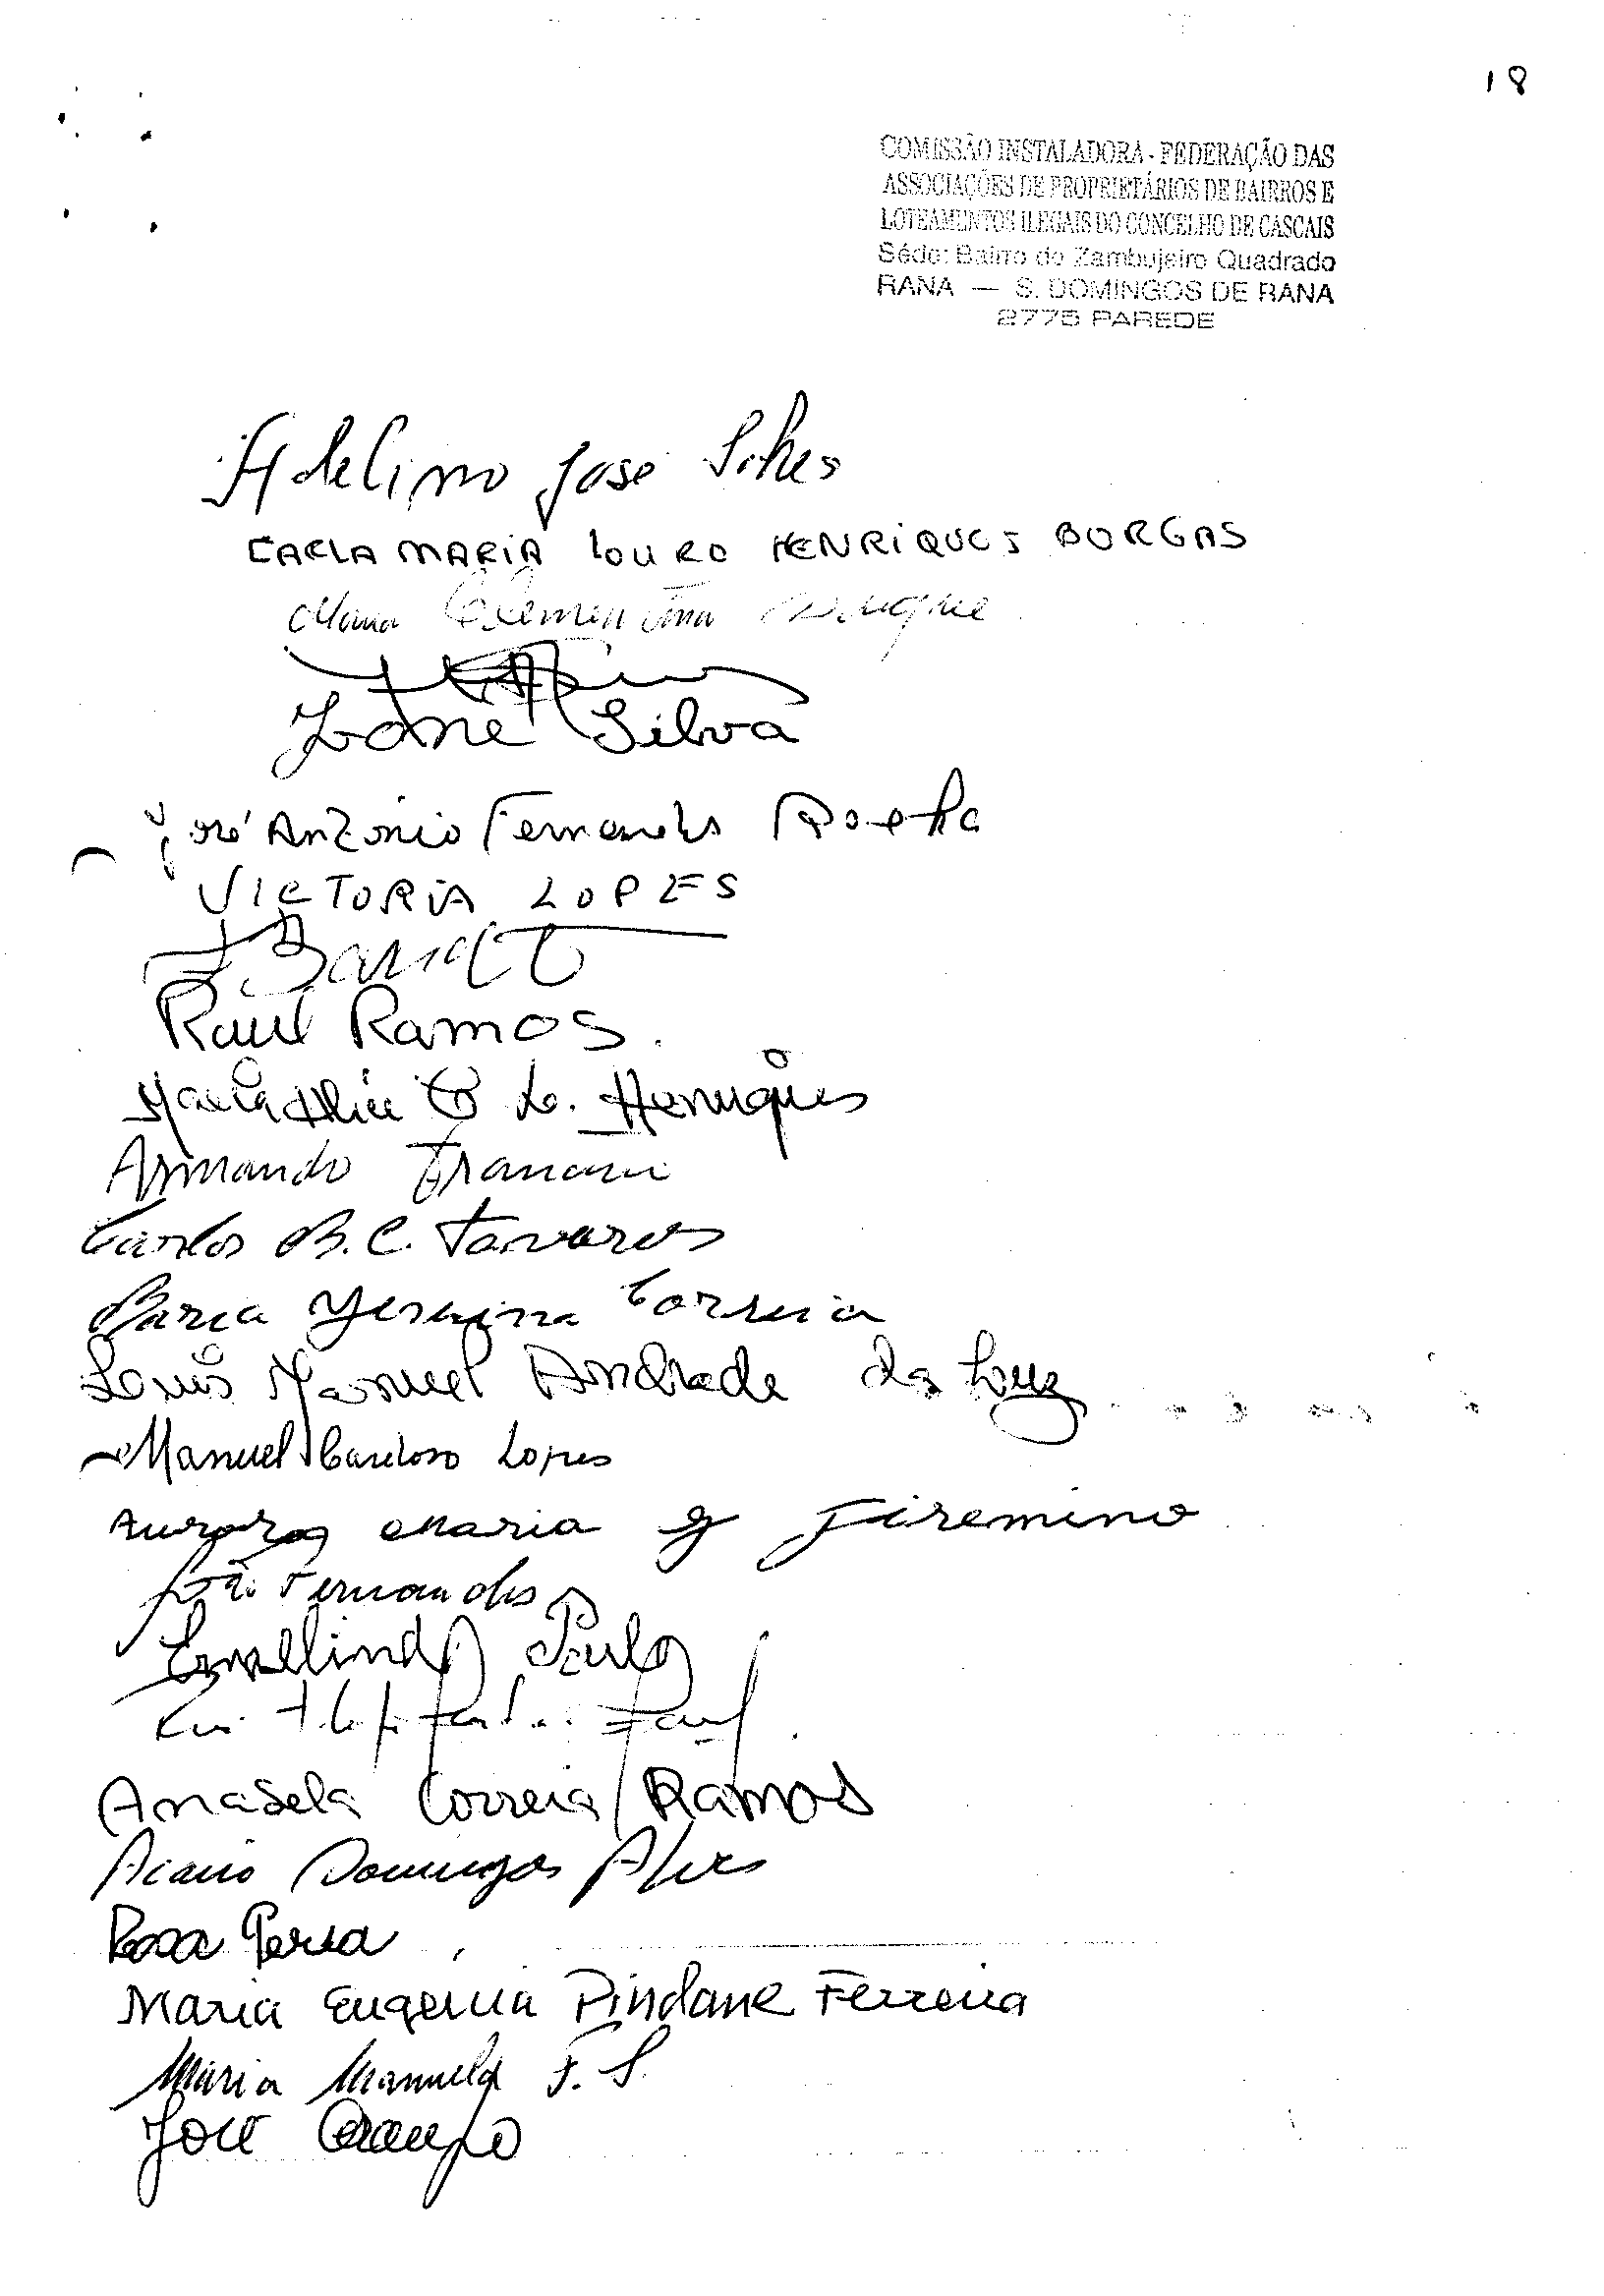 18
COMISSÃO INSTALADORA - FEDERAÇÃO DAS
ASSOCIAÇÕES DE PROPRIETÁRIOS DE BAIRROS E
LOTEAMENTOS ILEGAIS DO CONCELHO DE CASCAIS
Séde: Bairro do Zambujeiro Quadrado
RANA — S. DOMINGOS DE RANA
2775 PAREDE
Adelino José
CARLA MARIA LOURO HENRIQUES BORGAS
Maria Clementina
Ivone Silva
José António Fernandes Rocha
VICTORIA LOPES
Raul Ramos.
Maria Alice Henriques
Armando
Carlos B. C. Tavares
Maria Correia
Louis Manuel Andrade da Luz
Manuel Cardoso Lopes
Aurora Maria g Firemino
João Fernandes
Ermelinda Paulo
Anabela Correia Ramos
Domingos Alves
Rosa
Maria Eugenia Pindane Ferreira
Maria Manuela F. S.
José